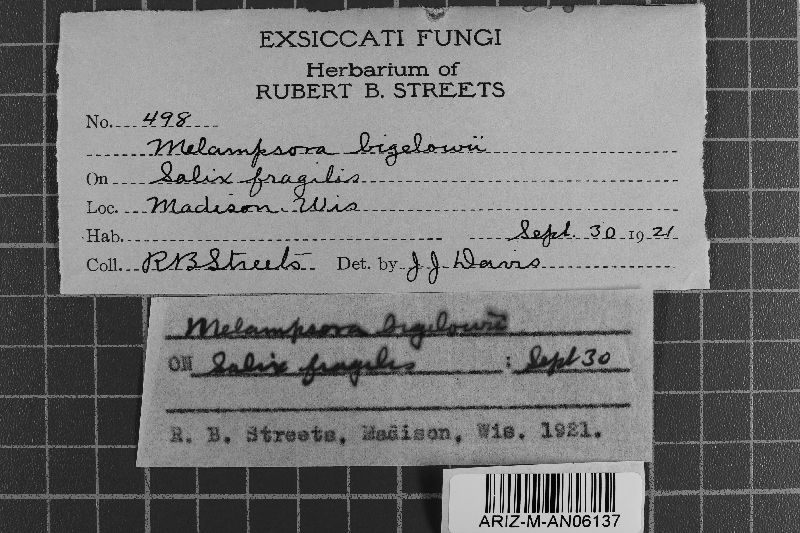 EXSICCATI FUNGI
Herbarium of
RUBERT B. STREETS
No. 498
Melampsora bigelowii
On Salix fragilis
Loc. Madison Wis
Hab. Sept. 30 1921
Coll. RBStreets Det. by J J Davis
Melampsora bigelowii
ON Salix fragilis : Sept 30
R. B. Streets, Madison, Wis. 1921.
ARIZ-M-AN06137